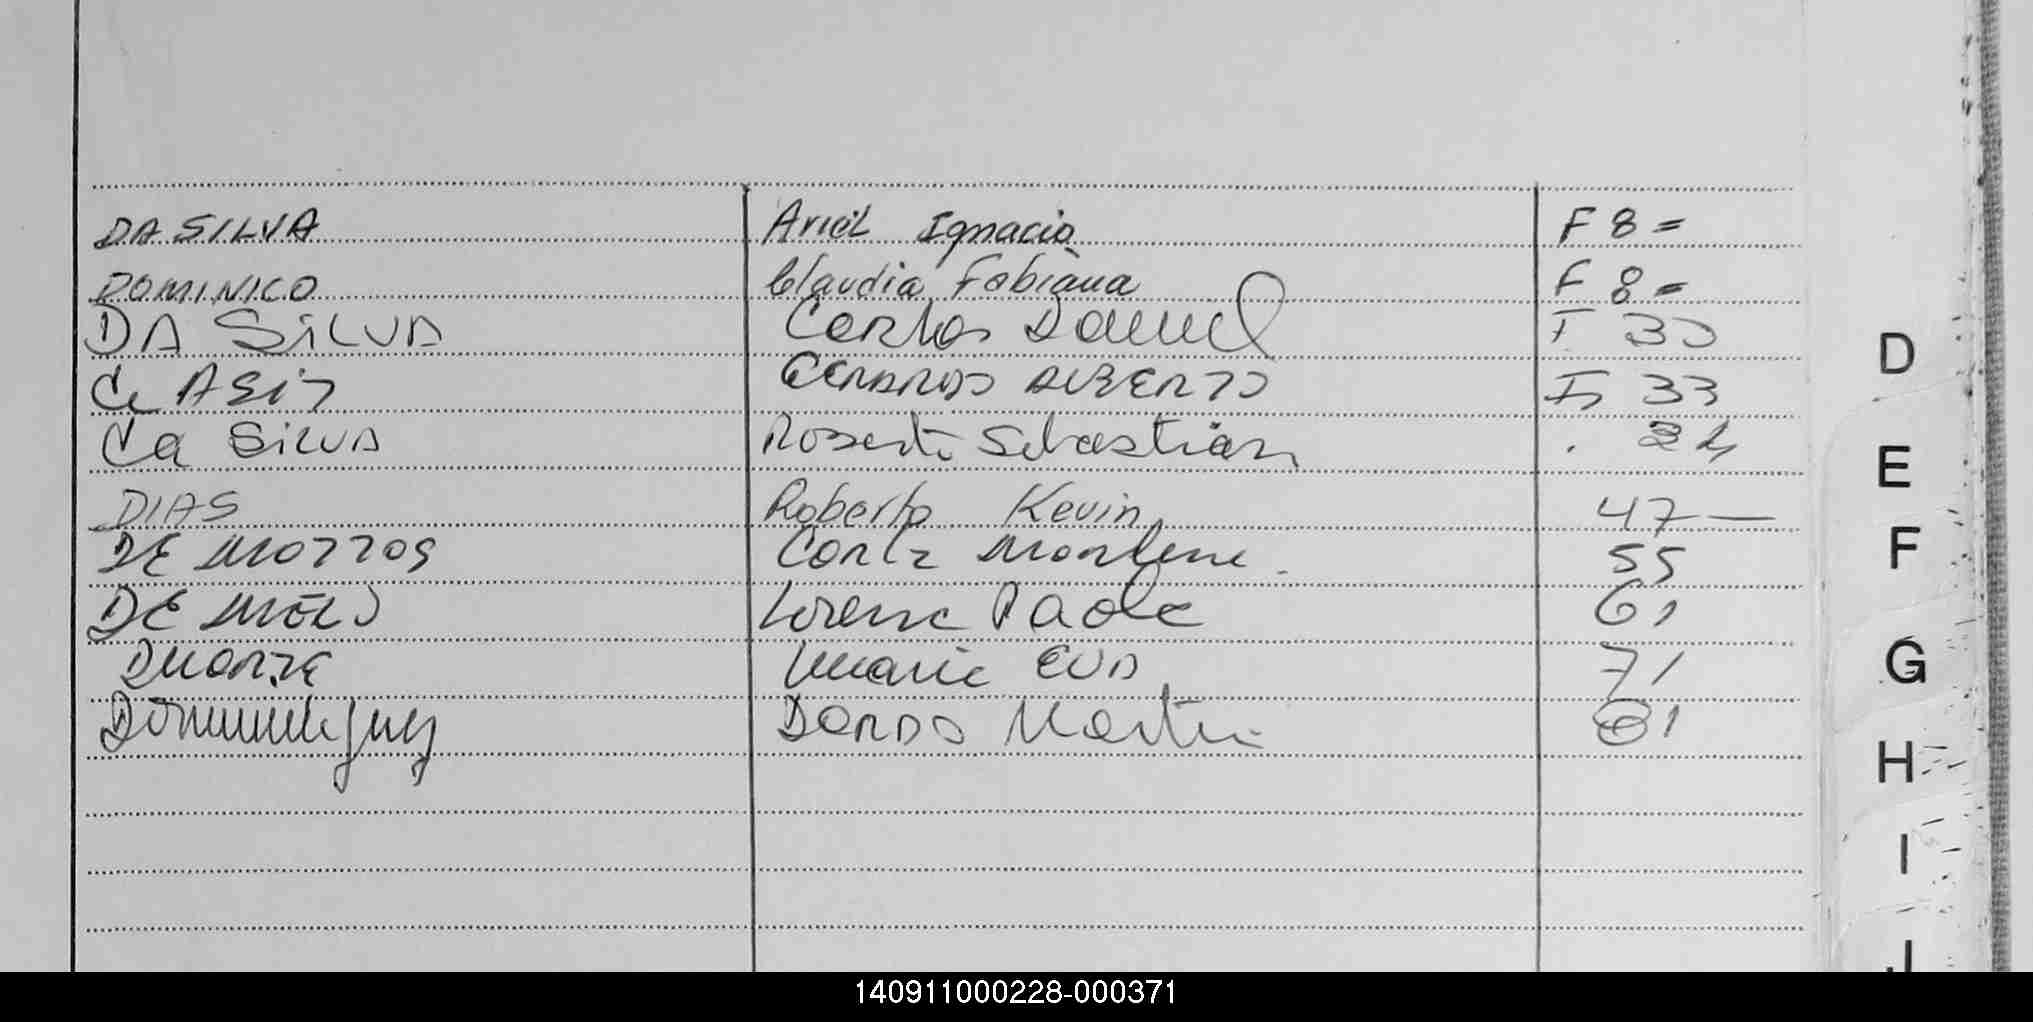 DA SILVA Ariel Ignacio F 8 =
DOMINICO Claudia Fabiana F 8 =
DA SiLVA Carlos Daniel F 33
de ASis Alberto F 33
da SiLVA Roberto Sebastian 34
DIAS Roberto Kevin 47 —
DE Mattos Carla Marlene 55
DE MELO Lorena Paola 61
Duarte Maria EVA 71
Dominguez Dardo Martin 81
D
E
F
G
H
I
J
140911000228-000371